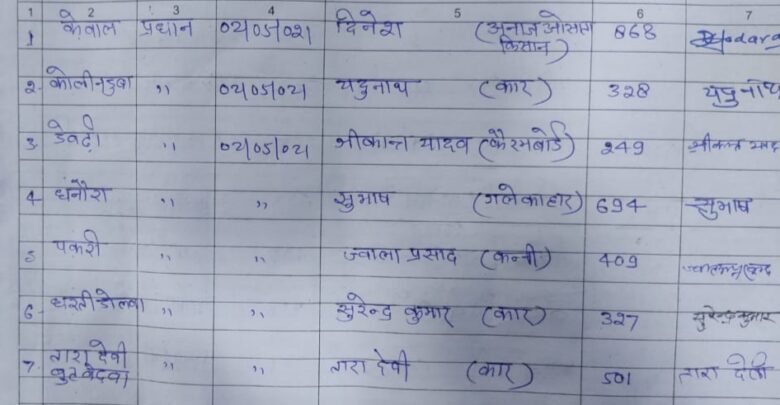 1 2 3 4 5 6 7
1 केवाल प्रधान 02/05/021 दिनेश (अनाज ओसाता किसान) 868
2. कोलीनडुबा ,, 02/05/021 यदुनाथ (कार) 328 यदुनाथ
3. डेवढ़ी ,, 02/05/021 श्रीकान्त यादव (कैरमबोर्ड) 249
4 धनौरा ,, ,, सुभाष (गले का हार) 694 सुभाष
5 पकरी ,, ,, ज्वाला प्रसाद (कन्नी) 409
6- धरतीडोलवा ,, ,, सुरेन्द्र कुमार (कार) 327 सुरेन्द्र कुमार
7. तारा देवी ,, ,, तारा देवी (कार) 501 तारा देवी